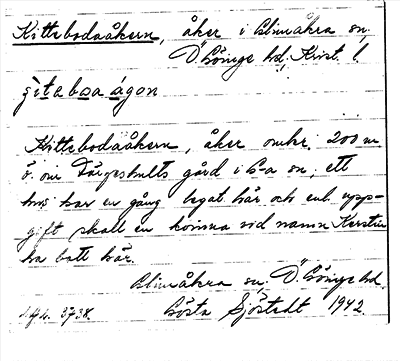 Kittebodaåkern, åker i Glimåkra sn,
Ö. Göinge hd, Krist. l.
Kittebodaåkern, åker omkr. 200 m
ö. om Färgeshults gård i G-a sn, ett
hus har en gång legat här och enl. upp-
gift skall en kvinna vid namn Kerstin
ha bott här.
Glimåkra sn, Ö. Göinge hd.
Gösta Sjöstedt 1942.